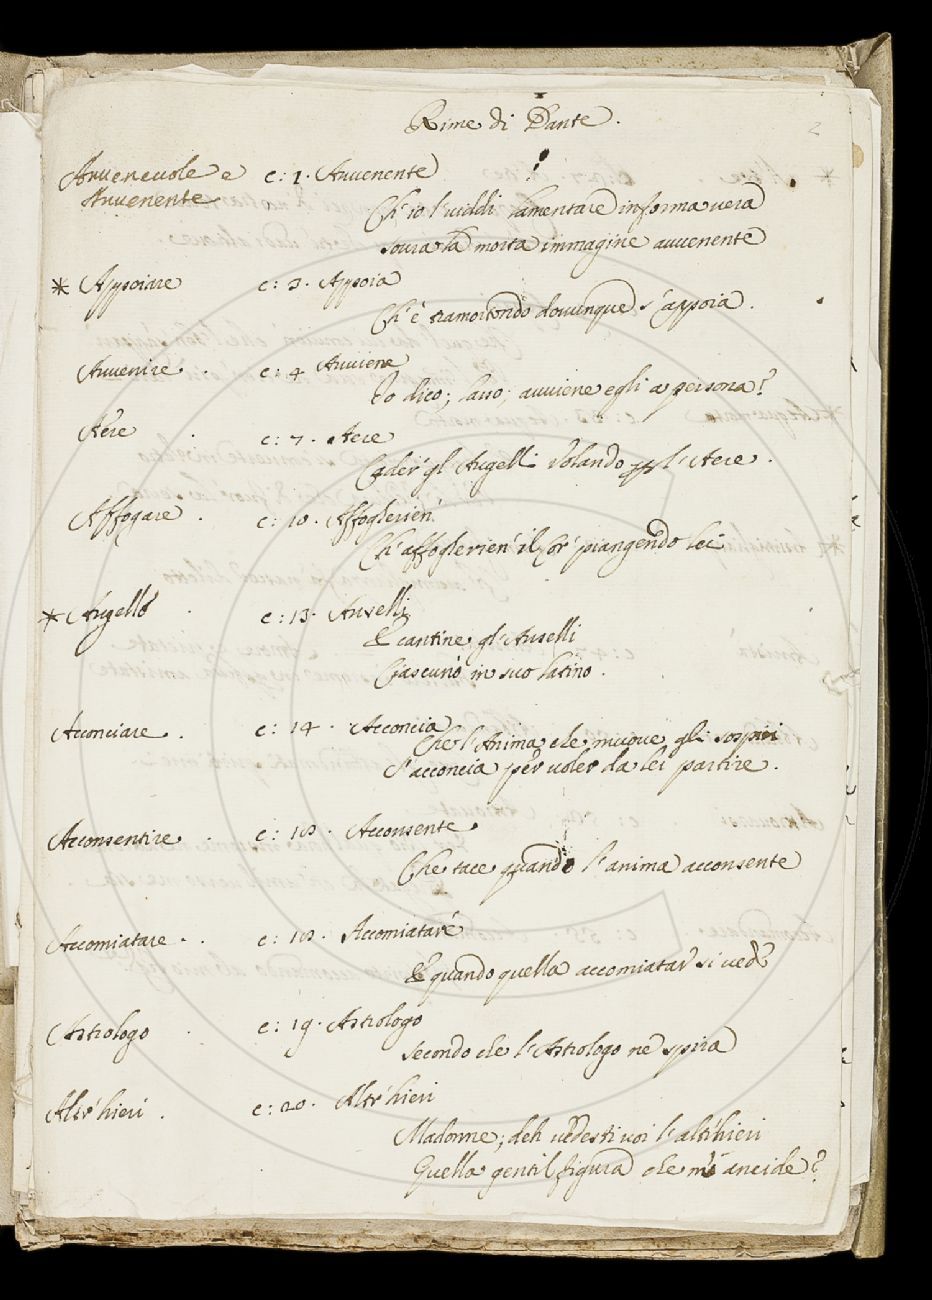 Rime di Dante.
2
Avvenevole e c: 1. Avvenente
Avvenente
Ch'io 'l viddi lamentare in forma vera
sovra la morta immagine avvenente
* Appoiare c: 3. Appoia
Ch'è tramortendo dovunque s'appoia.
Avvenire. c: 4 Avviene
Io dico; lasso; avviene egli a persona?
Aere c: 7. Aere
Cader gl'Augelli volando per l'Aere.
Affogare. c: 10. Affoglerien'
Ch'affoglerien' il Cor' piangendo lei
* Augello c: 13. Auselli
E cantine gl'Auselli
Ciascuno in suo latino.
Acconciare. c: 14. Acconcia
Che l'Anima che muove gli sospiri
S'acconcia per voler da lei partire.
Acconsentire. c: 18. Acconsente
Che tace quando l'anima acconsente
Accomiatare.. c: 18. Accomiatare
E quando quella accomiatar si vede
Astrologo. c: 19. Astrologo
secondo che l'Astrologo ne spira
Altr'hieri. c: 20. Altr'hieri
Madonne; deh vedesti voi l'altr'hieri
Quella gentil figura che m'ancide?